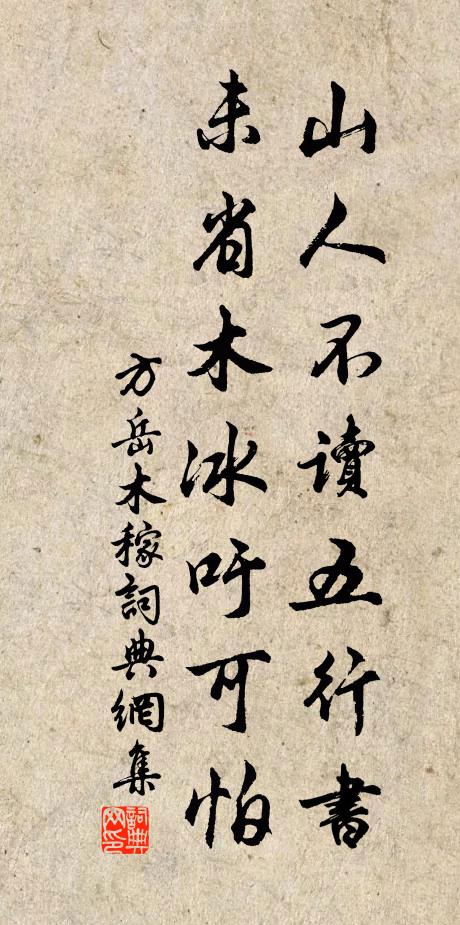 山人不讀五行書
未省木冰吁可怕
方岳木稼詞典網集
詞典
网印